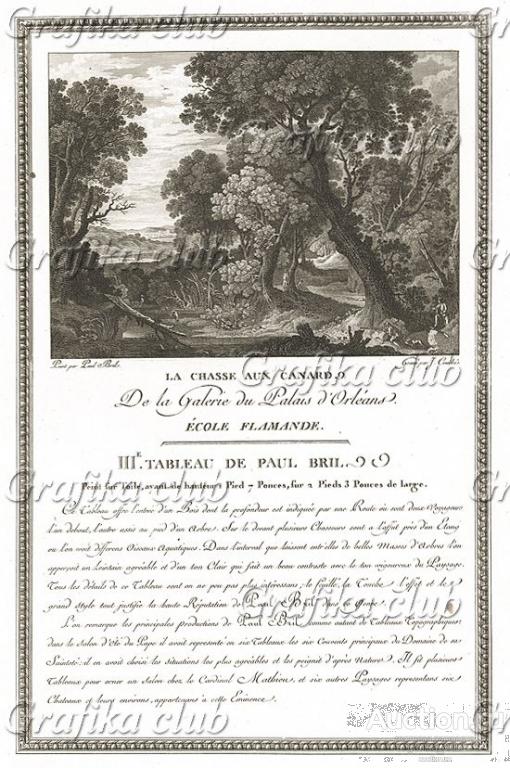 Grafika club Grafika club
Grafika club Grafika club
Grafika club Grafika club
Peint par Paul Bril. Gravé par J. Couché
LA CHASSE AUX CANARDS
De la Galerie du Palais d'Orléans.
ÉCOLE FLAMANDE.
IIIE. TABLEAU DE PAUL BRIL.
Peint sur Toile, ayant de hauteur 1 Pied 7 Pouces, sur 2 Pieds 3 Pouces de large.
Ce Tableau offre l'entrée d'un Bois dont la profondeur est indiquée par une Route où sont deux Voyageurs
l'un debout, l'autre assis au pied d'un Arbre. Sur le devant plusieurs Chasseurs sont à l'affût près d'un Etang
où l'on voit differens Oiseaux Aquatiques. Dans l'interval que laissent entr'elles de belles Masses d'Arbres l'on
apperçoit un lointain agréable et d'un ton Clair qui fait un beau contraste avec le ton vigoureux du Paysage.
Tous les détails de ce Tableau sont on ne peu pas plus intéressans; le feuillé, la Touche, l'effet et le
grand style tout justifie la haute Réputation de Paul Bril dans ce Genre.
L'on remarque les principales productions de Paul Bril comme autant de Tableaux Topographiques
dans le Salon d'Eté du Pape il avait représenté en six Tableaux les six Couvents principaux du Domaine de sa
Sainteté: il en avoit choisi les situations les plus agréables et les peignit d'après Nature. Il fit plusieurs
Tableaux pour orner un Salon chez le Cardinal Mathieu, et six autres Paysages representans six
Chateaux et leurs environs, appartenans à cette Eminence.
Grafika club Grafika club
Grafika club Grafika club
Grafika club
Auction.ru